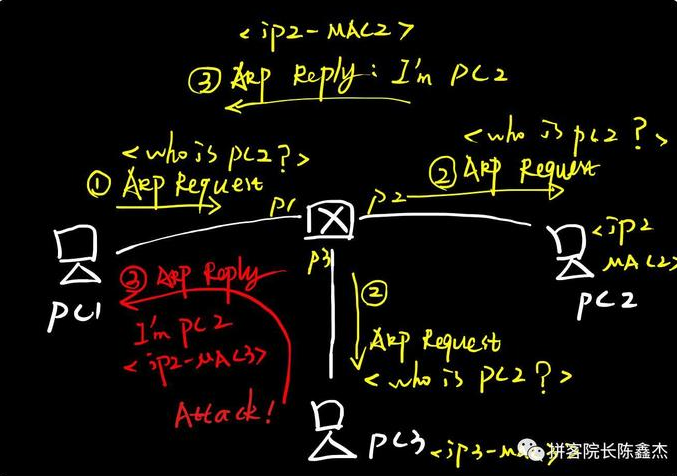 <ip2-MAC2>
③ ARP Reply: I'm PC2
<who is PC2?>
① ARP Request
<who is PC2?>
② ARP Request
P1
P2
P3
PC1
<ip2
MAC2>
PC2
③ ARP Reply
I'm PC2
<ip2-MAC3>
Attack!
②
ARP Request
<who is PC2?>
PC3
<ip3-
拼客院长陈鑫杰